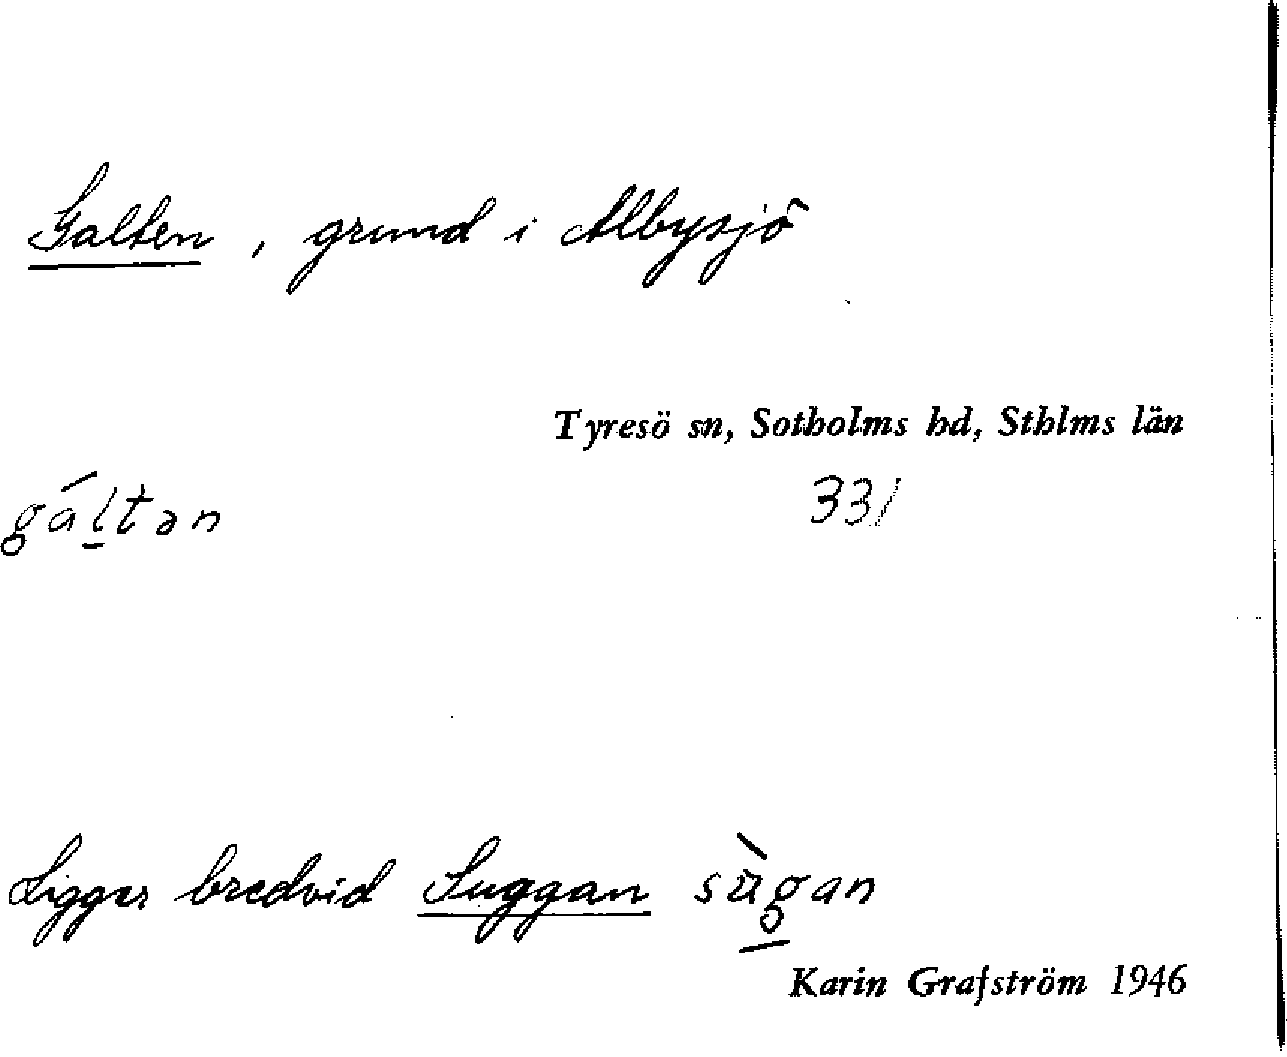 Galten, grund i Albysjö
Tyresö sn, Sotholms hd, Sthlms län
gál̲tən
331
Ligger bredvid Suggan sùg̲an
Karin Grafström 1946